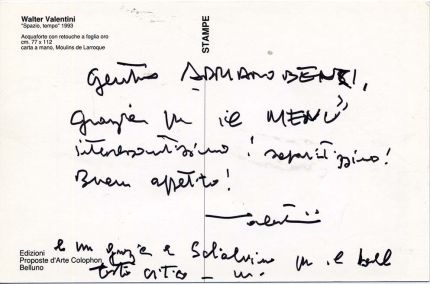 Walter Valentini
"Spazio, tempo" 1993
Acquaforte con retouche a foglia oro
cm. 77 x 112
carta a mano, Moulins de Larroque
STAMPE
Gentile ADRIANO BENZI,
grazie per il MENU
interessantissimo! saporitissimo!
Buon appetito!
Valentini
Edizioni
Proposte d'Arte Colophon
Belluno
e un grazie a per il bell
testo critico